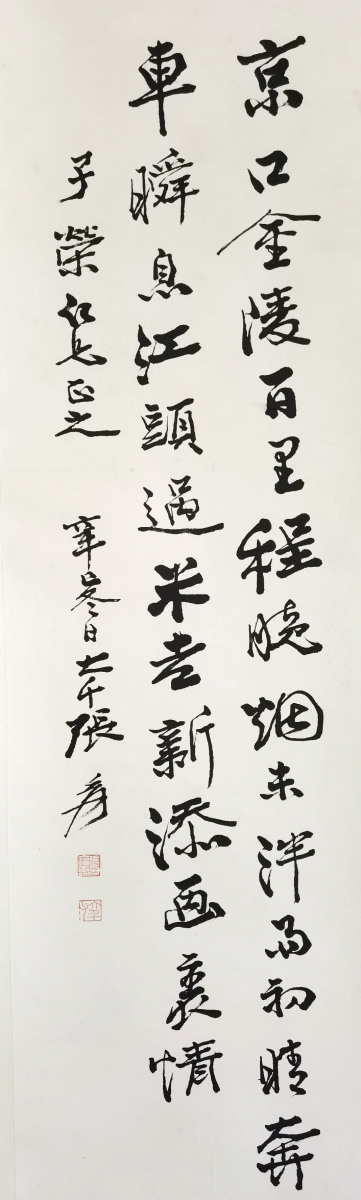 京口金陵百里程曉烟未泮雨初晴奔
車瞬息江頭過米老新添畫裏情
子榮仁兄正之 辛巳冬日大千張爰